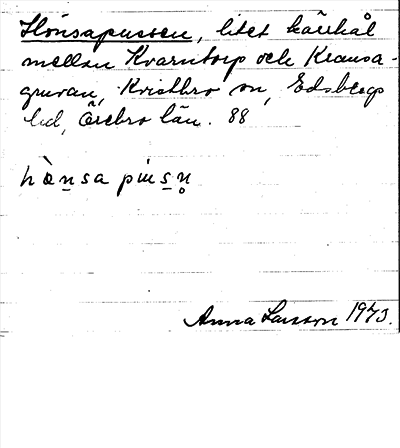 Hönsapussen, litet kärrhål
mellan Kvarntorp och Krausa-
gruvan, Kvistbro sn, Edsbergs
hd, Örebro län. 88
Anna Larsson 1973.